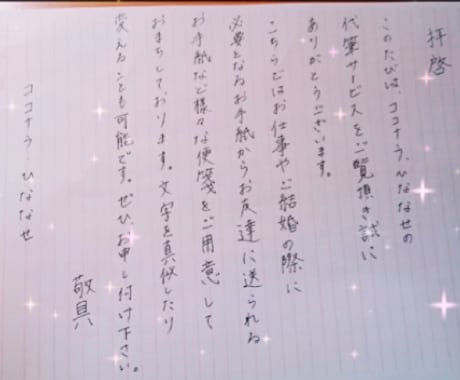 拝啓
このたびは、ココナラ、ひななせの
代筆サービスをご覧頂き誠に
ありがとうございます。
こちらではお仕事やご結婚の際に
必要となるお手紙からお友達に送られる
お手紙など様々な便箋をご用意して
おまちしております。文字を真似したり
変えることも可能です。ぜひお申し付け下さい。
敬具
ココナラ・ひななせ